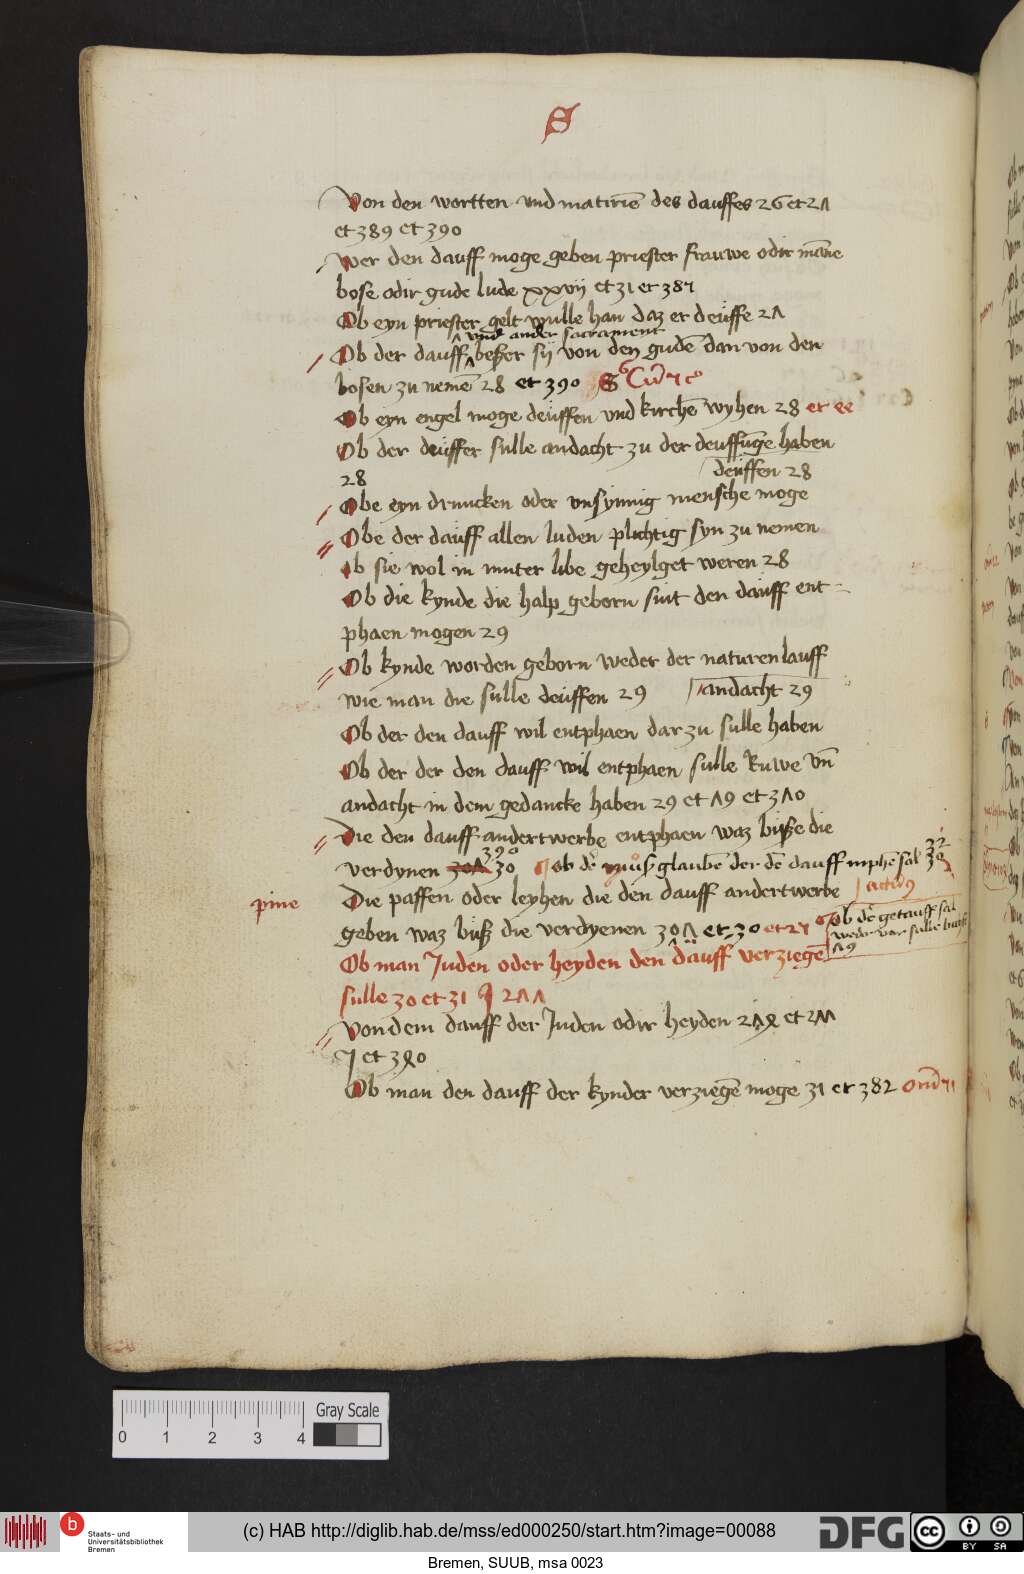 S
Von den wortten vnd matirie᷑ des dauffes 26 et 27
et 389 et 390
Wer den dauff moge geben priester frauwe odir ma᷑ne
bose odir gude lude xxvij et 31 et 387
Ob eyn priester gelt wulle han daz er deuffe 27
vnd ander sacrament
Ob der dauff beßer sij von den gude᷑ dan von den
bosen zu neme᷑ 28 et 390
Ob eyn engel moge deuffen vnd kirche᷑ wyhen 28 et
Ob der deuffer sulle andacht zu der deuffu᷑ge haben
28 deuffen 28
Obe eyn druncken oder vnsynnig mensche moge
Obe der dauff allen luden plichtig syn zu nemen
ob sie wol in muter libe geheylget weren 28
Ob die kynde die halp geborn sint den dauff ent=
phaen mogen 29
Ob kynde worden geborn weder der naturen lauff
wie man die sulle deuffen 29 andacht 29
Ob der den dauff wil entphaen dar zu sulle haben
Ob der der den dauff wil entphaen sulle Ruwe vn᷑
andacht in dem gedancke haben 29 et 79 et 370
Die den dauff andertwerbe entphaen waz buße die
390
verdynen 307 30 ob d᷑ muͦß glaube᷑ der de᷑ dauff inphe᷑ sal 30
32
pine
Die paffen oder leyhen die den dauff andertwerbe
geben waz buß die verdyenen 307 et 30 et 27
Ob d᷑ getaufft sal
79
Ob man Juden oder heyden den dauff verziege᷑
sulle 30 et 31 277
Von dem dauff der Juden odir heyden et 277
J et 380
Ob man den dauff der kynder verziege᷑ moge 31 et 382
Gray Scale
0 1 2 3 4
Staats- und
Universitätsbibliothek
Bremen
(c) HAB http://diglib.hab.de/mss/ed000250/start.htm?image=00088
DFG
cc BY SA
Bremen, SUUB, msa 0023